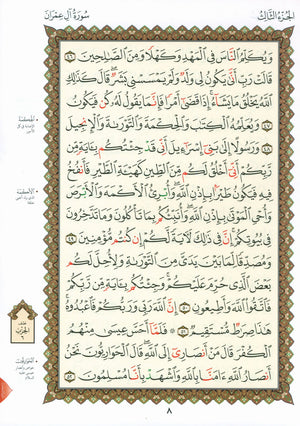 سُورَةُ آلِ عِمْرَان
الجُزْءُ الثَّالِثُ
وَيُكَلِّمُ النَّاسَ فِي الْمَهْدِ وَكَهْلًا وَمِنَ الصَّالِحِينَ ٤٦
قَالَتْ رَبِّ أَنَّى يَكُونُ لِي وَلَدٌ وَلَمْ يَمْسَسْنِي بَشَرٌ قَالَ كَذَلِكِ
اللَّهُ يَخْلُقُ مَا يَشَاءُ إِذَا قَضَى أَمْرًا فَإِنَّمَا يَقُولُ لَهُ كُنْ فَيَكُونُ
٤٧ وَيُعَلِّمُهُ الْكِتَابَ وَالْحِكْمَةَ وَالتَّوْرَاةَ وَالْإِنْجِيلَ
٤٨ وَرَسُولًا إِلَى بَنِي إِسْرَائِيلَ أَنِّي قَدْ جِئْتُكُمْ بِآيَةٍ مِنْ
رَبِّكُمْ أَنِّي أَخْلُقُ لَكُمْ مِنَ الطِّينِ كَهَيْئَةِ الطَّيْرِ فَأَنْفُخُ
فِيهِ فَيَكُونُ طَيْرًا بِإِذْنِ اللَّهِ وَأُبْرِئُ الْأَكْمَهَ وَالْأَبْرَصَ
وَأُحْيِ الْمَوْتَى بِإِذْنِ اللَّهِ وَأُنَبِّئُكُمْ بِمَا تَأْكُلُونَ وَمَا تَدَّخِرُونَ
فِي بُيُوتِكُمْ إِنَّ فِي ذَلِكَ لَآيَةً لَكُمْ إِنْ كُنْتُمْ مُؤْمِنِينَ ٤٩
وَمُصَدِّقًا لِمَا بَيْنَ يَدَيَّ مِنَ التَّوْرَاةِ وَلِأُحِلَّ لَكُمْ
بَعْضَ الَّذِي حُرِّمَ عَلَيْكُمْ وَجِئْتُكُمْ بِآيَةٍ مِنْ رَبِّكُمْ
فَاتَّقُوا اللَّهَ وَأَطِيعُونِ ٥٠ إِنَّ اللَّهَ رَبِّي وَرَبُّكُمْ فَاعْبُدُوهُ
هَذَا صِرَاطٌ مُسْتَقِيمٌ ٥١ فَلَمَّا أَحَسَّ عِيسَى مِنْهُمُ
الْكُفْرَ قَالَ مَنْ أَنْصَارِي إِلَى اللَّهِ قَالَ الْحَوَارِيُّونَ نَحْنُ
أَنْصَارُ اللَّهِ آمَنَّا بِاللَّهِ وَاشْهَدْ بِأَنَّا مُسْلِمُونَ ٥٢
٨